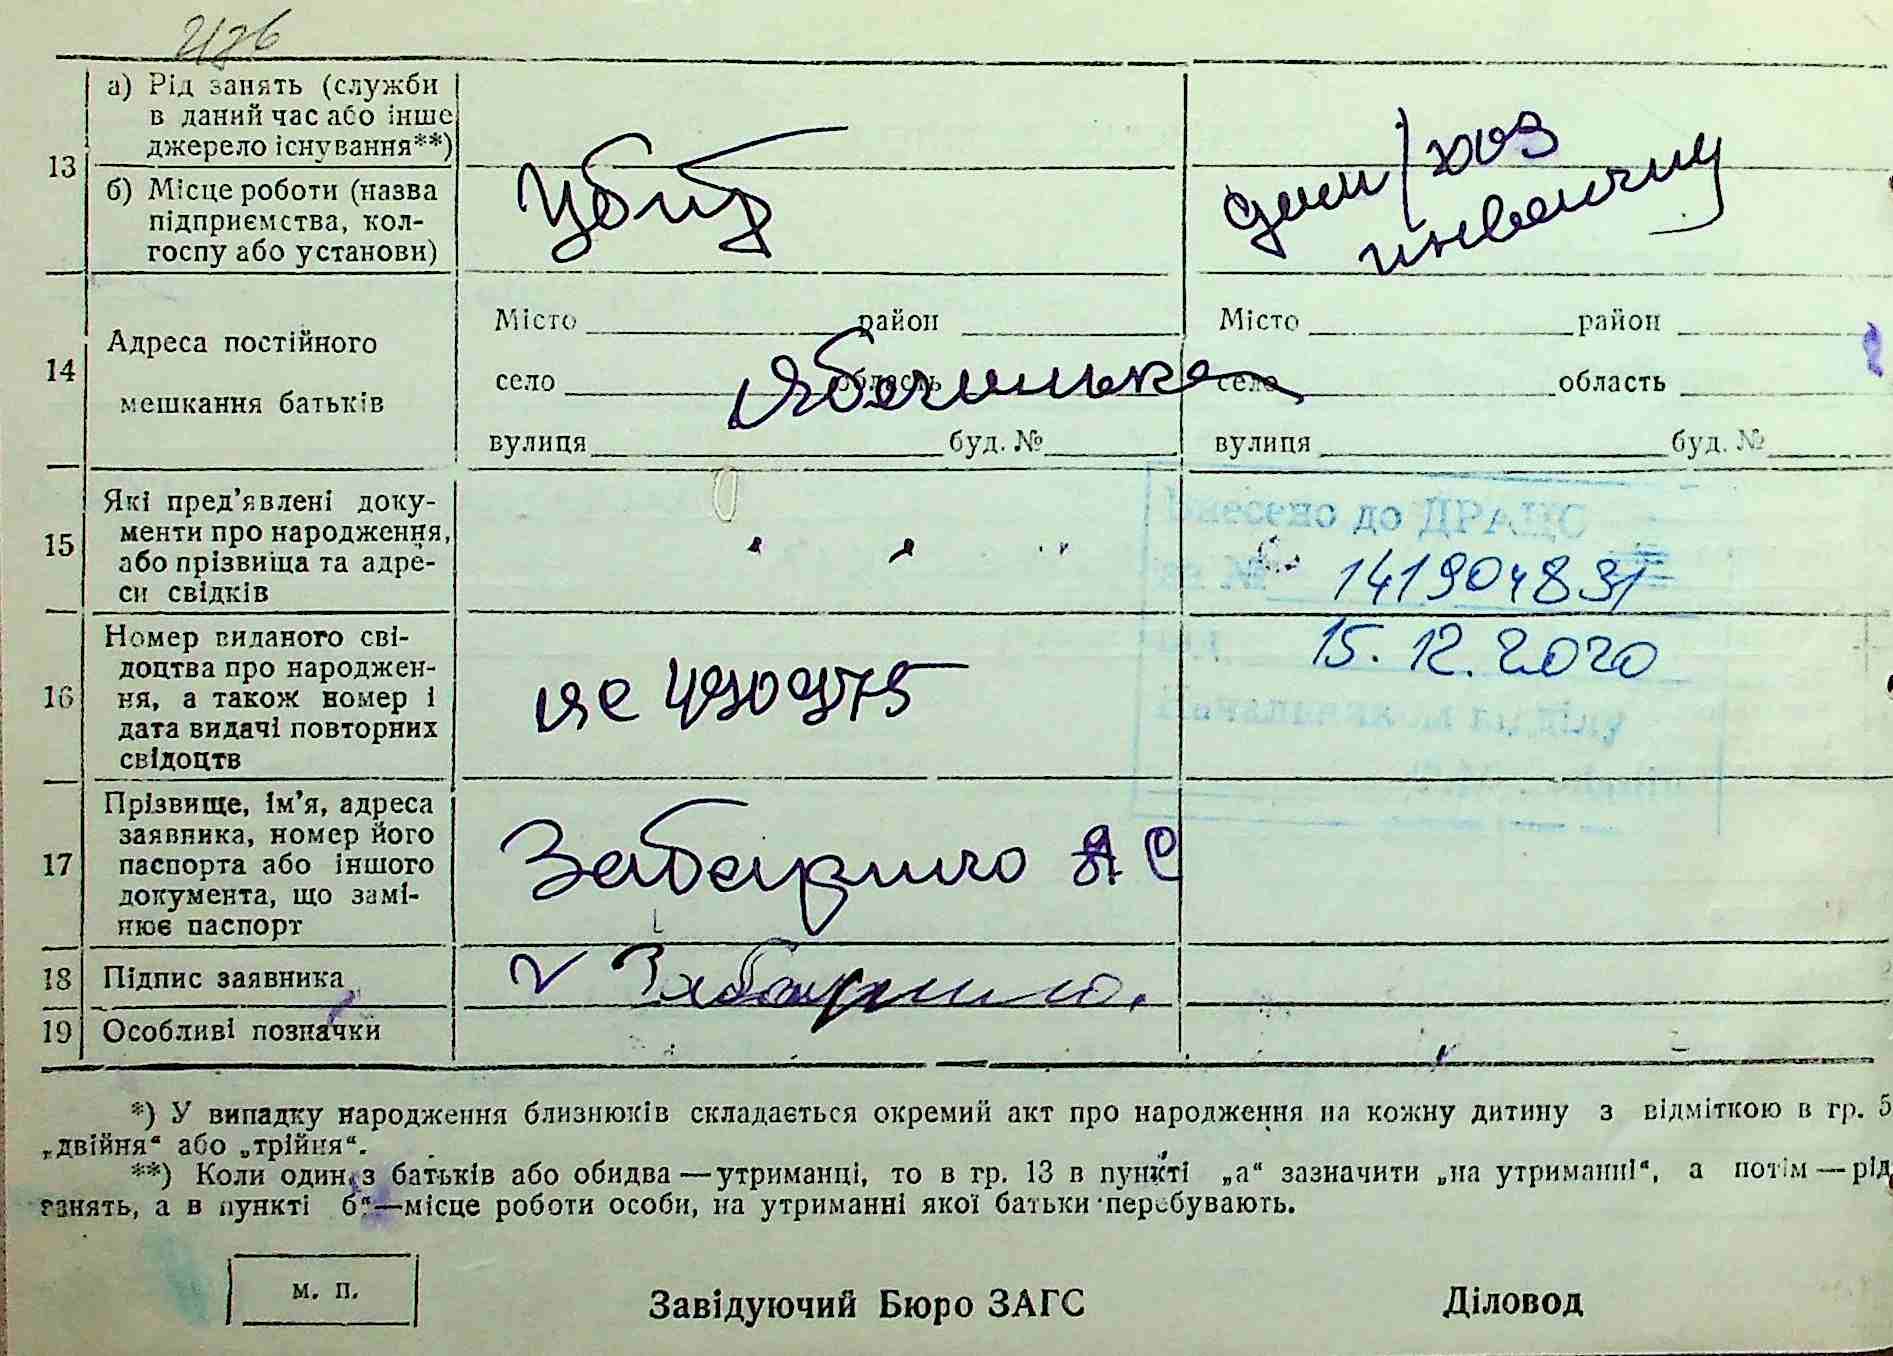 2126
а) Рід занять (служби
в даний час або інше
джерело існування**)
13
б) Місце роботи (назва
підприємства, кол-
госпу або установи)
Убит
дом/хоз
Місто район
Місто район
14
Адреса постійного
мешкання батьків
село область
село область
вулиця буд. №
вулиця буд. №
15
Які пред’явлені доку-
менти про народження,
або прізвища та адре-
си свідків
Внесено до ДРАЦС
за № 141904831
15.12.2020
16
Номер виданого сві-
доцтва про народжен-
ня, а також номер і
дата видачі повторних
свідоцтв
ЯС 490975
Начальник відділу
17
Прізвище, ім’я, адреса
заявника, номер його
паспорта або іншого
документа, що замі-
нює паспорт
18 Підпис заявника
19 Особливі позначки
*) У випадку народження близнюків складається окремий акт про народження на кожну дитину з відміткою в гр. 5
„двійня“ або „трійня“.
**) Коли один з батьків або обидва — утриманці, то в гр. 13 в пункті „а“ зазначити „на утриманні“, а потім — рід
занять, а в пункті б“—місце роботи особи, на утриманні якої батьки перебувають.
м. п.
Завідуючий Бюро ЗАГС
Діловод